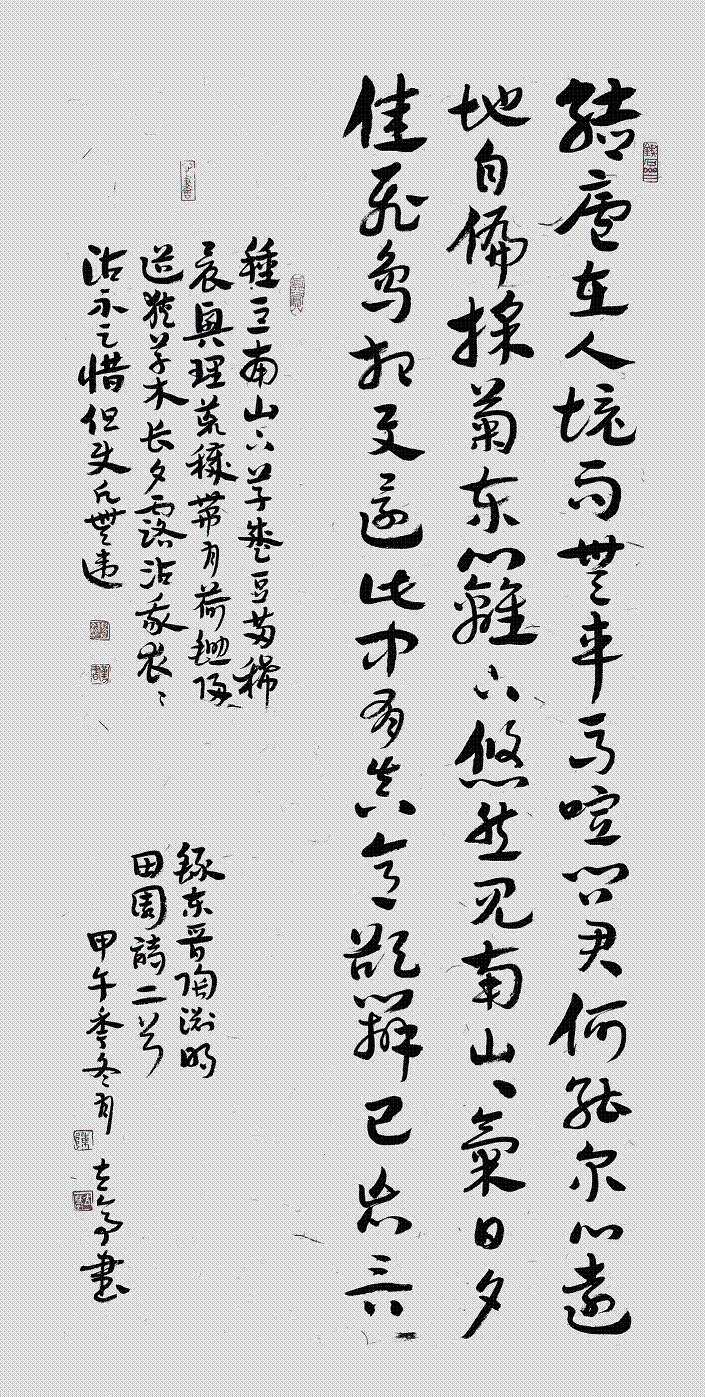 結廬在人境而無車馬喧问君何能尔心遠
地自偏採菊东籬下悠然见南山、氣日夕
佳飛鸟相与還此中有真意欲辨已忘言
種豆南山下草盛豆苗稀
晨興理荒穢帶月荷鋤归
道狹草木长夕露沾我衣、
沾不足惜但使願無违
録东晋陶渊明
田園詩二首
甲午季冬月
書